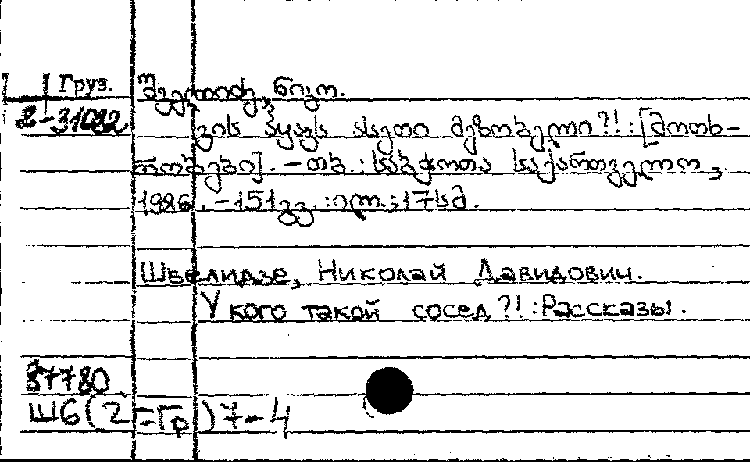 Груз.
2-31092
შველიძე, ნიკო.
ვის ჰყავს ასეთი მეზობელი?!: [მოთხ-
რობები]. - თბ.: საბჭოთა საქართველო,
1986. - 151 გვ.: ილ.; 17 სმ.
Швелидзе, Николай Давидович.
У кого такой сосед?!: Рассказы.
87780
Ш6(2=Гр)7-4